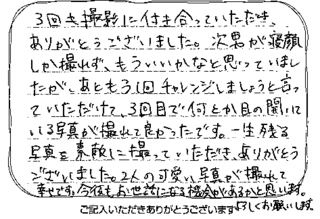 3回も撮影に付き合っていただき、
ありがとうございました。次男が寝顔
しか撮れず、もういいかなと思っていまし
たが、あともう1回チャレンジしましょうと言っ
ていただけて、3回目で何とか目の開いて
いる写真が撮れて良かったです。一生残る
写真を素敵に撮っていただき、ありがとう
ございました。2人の可愛い写真が撮れて
幸せです。今後もお世話になる機会があるかと思います。
よろしくお願いします。
ご記入いただきありがとうございます